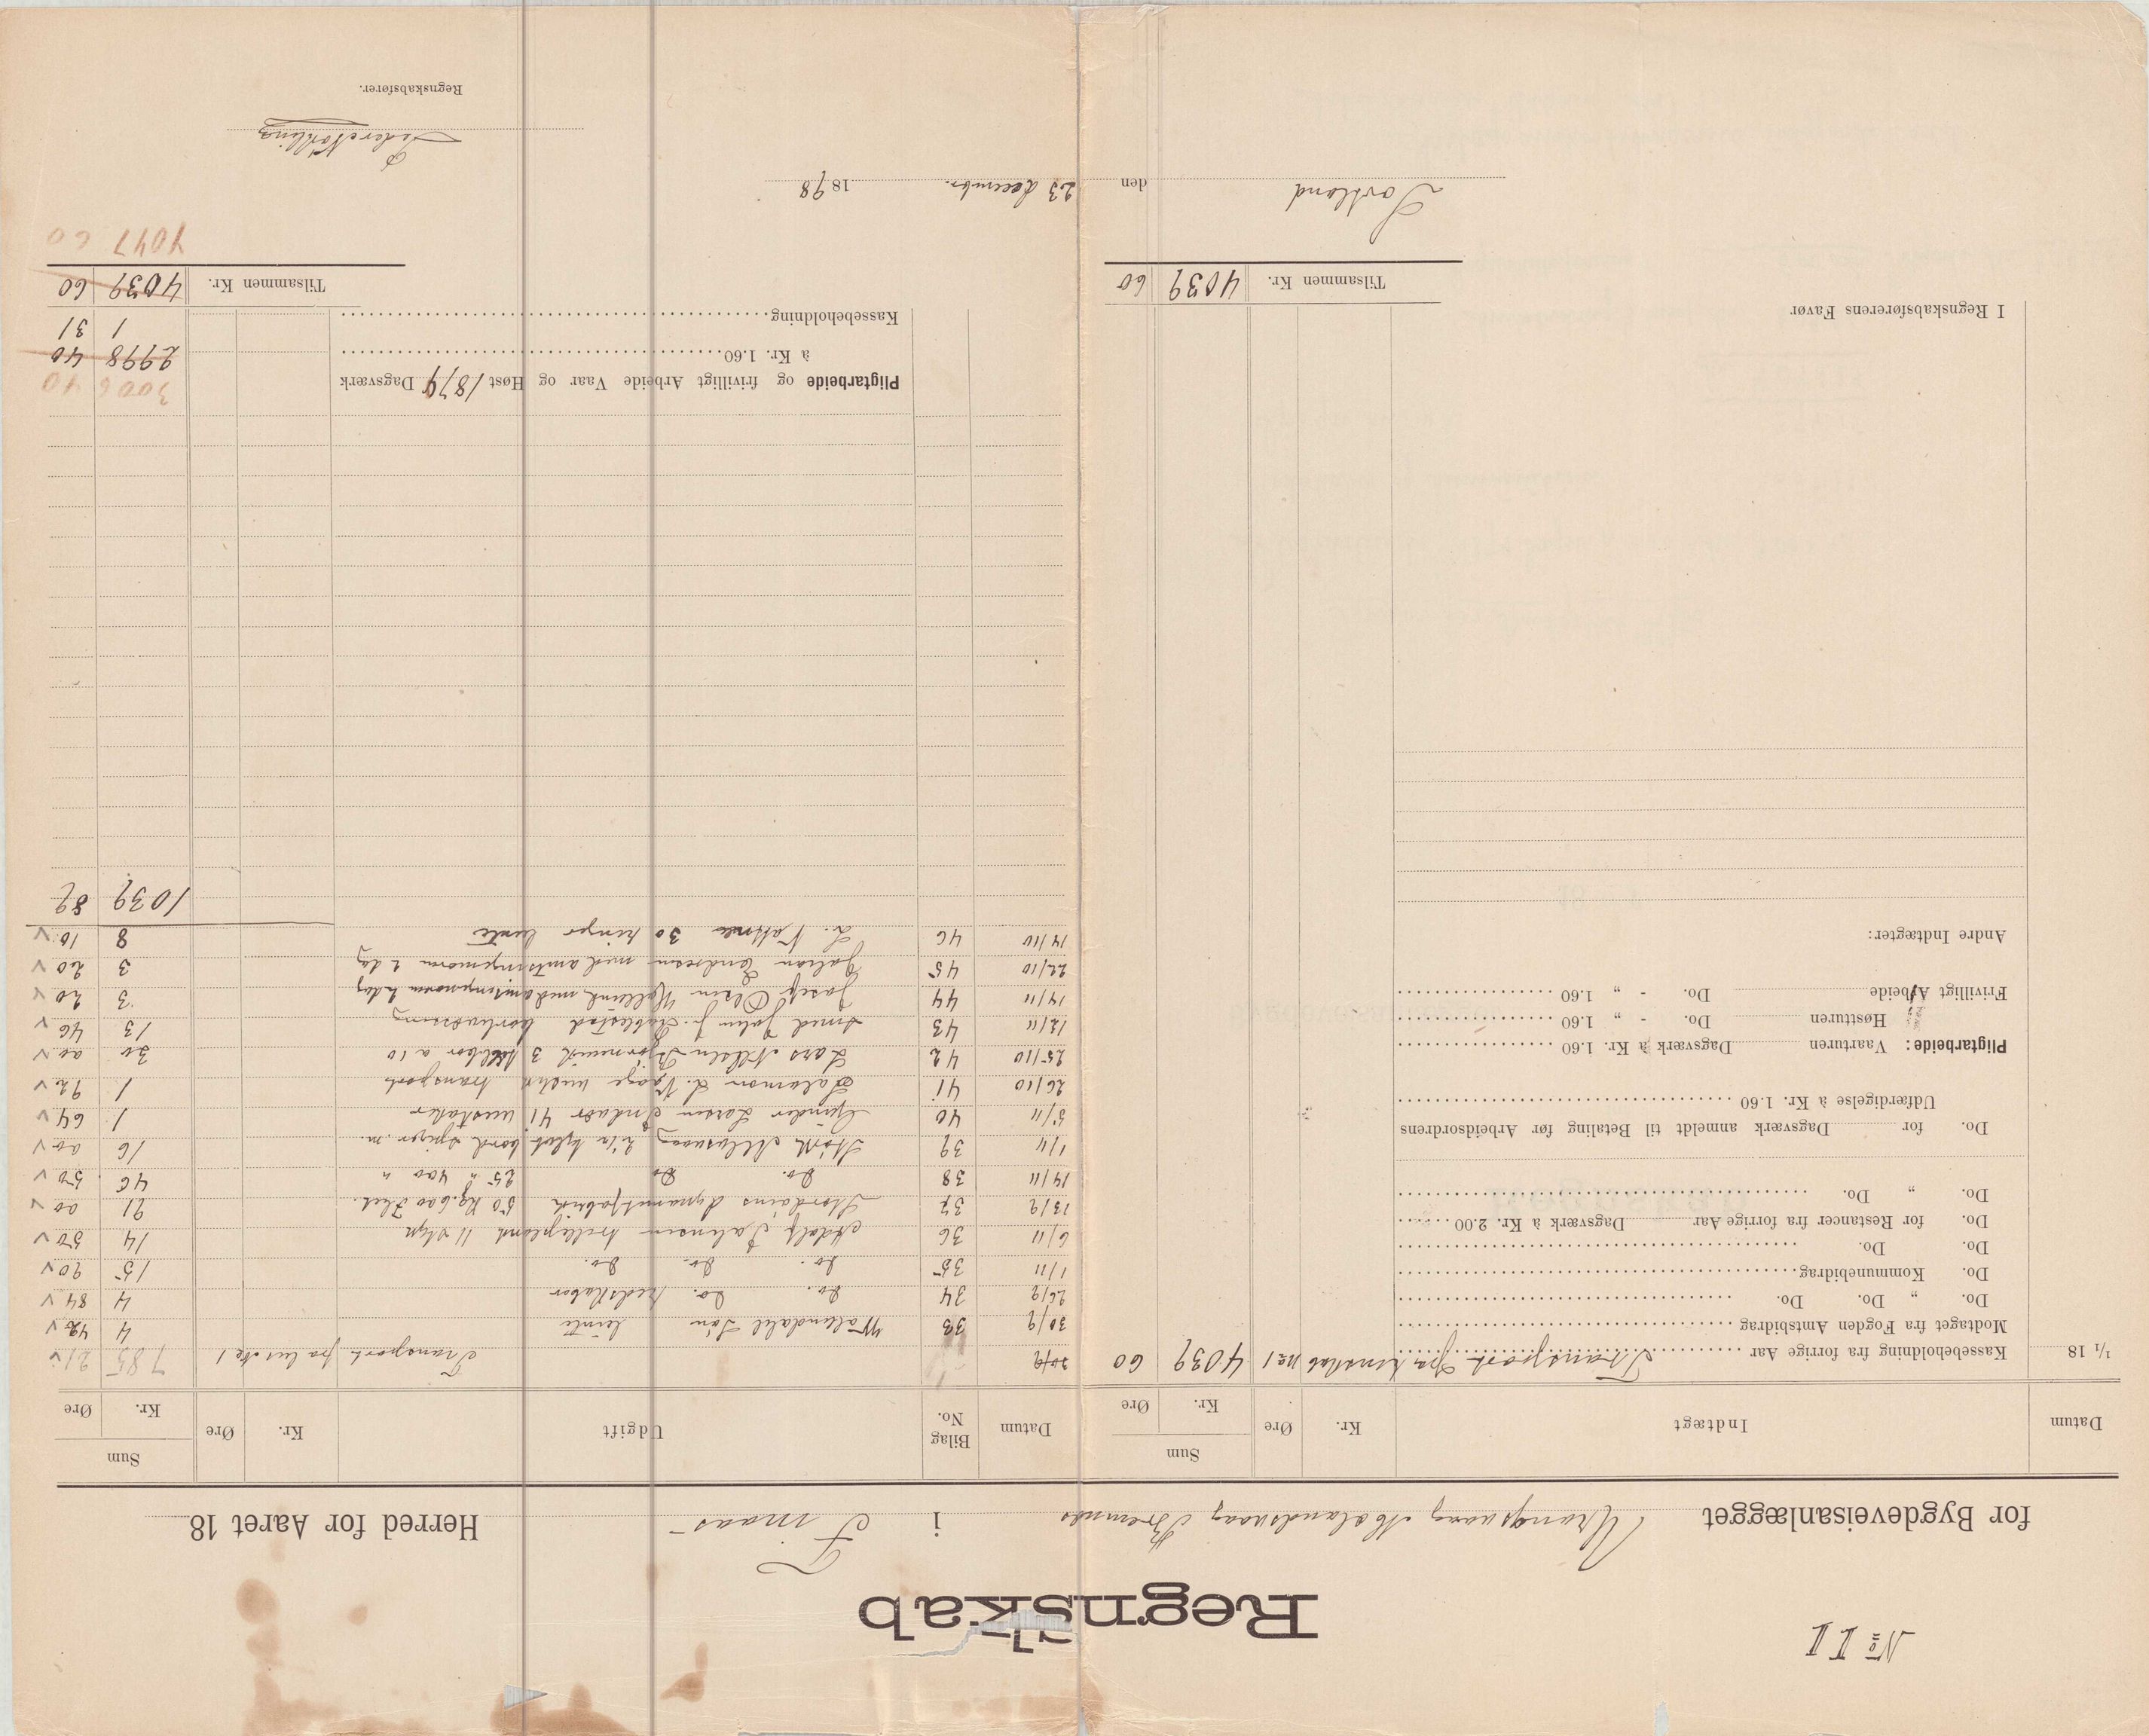 No II
Regnskab
for Bygdeveisanlægget Urangsvaag Mælandsvaag Bremnes i Finaas Herred for Aaret 18
Datum Indtægt Kr. Øre Sum Kr. Øre
1/1 18 Kassebeholdning fra forrige Aar Transport fra renskab no 1 4039 60
Modtaget fra Fogden Amtsbidrag
Do. „ Do. Do.
Do. Kommunebidrag
Do. Do.
Do. for Restancer fra forrige Aar Dagsværk à Kr. 2.00
Do. „ Do.
Do. for Dagsværk anmeldt til Betaling før Arbeidsordrens
Udfærdigelse à Kr. 1.60
Pligtarbeide: Vaarturen Dagsværk à Kr. 1.60
„ Høstturen Do. - „ 1.60
Frivilligt Arbeide Do. - „ 1.60
Andre Indtægter:
I Regnskabsførerens Favør
Tilsammen Kr. 4039 60
Datum Bilag No. Udgift Kr. Øre Sum Kr. Øre
30/9 Transport fra No 1 785 21 v
30/9 33 Wallendahl Søn lunte 4 42 v
26/9 34 Do. Do. redskaber 4 84 v
1/11 35 Do. Do. Do. 15 90 v
6/11 36 Adolf Johnsen trilleplank 11 styk 14 50 v
13/9 37 Stordøens dynamitfabrik 50 Kg. 600 Fhet. 91 00 v
14/11 38 Do. Do 25 " 400 " 46 50 v
1/11 39 Størk 2 1/2 bord spiger m. 16 00 v
5/11 40 Gunder Larsen Indvær 41 1 64 v
26/10 41 Salamon L. Vaage transport 1 92 v
25/10 42 Lars Nilsen Bjørnevik 3 a 10 30 00 v
12/11 43 smed John J. Rablestad borhvæssing 13 46 v
14/11 44 Josef Olsen Halleink med amtsingeniøren 2 dag 3 20 v
22/10 45 Johan Endresen med amtsingeniøren 2 dag 3 20 v
14/10 46 L. Vattne 30 ringer lunte 8 10 v
1039 89
Pligtarbeide og frivilligt Arbeide Vaar og Høst 1879 Dagsværk 3006 40
à Kr. 1.60 2998 40
Kassebeholdning 1 31
Tilsammen Kr. 4039 60
4047 60
Sortland den 23 decembr. 1898
Peder Nökling
Regnskabsfører.